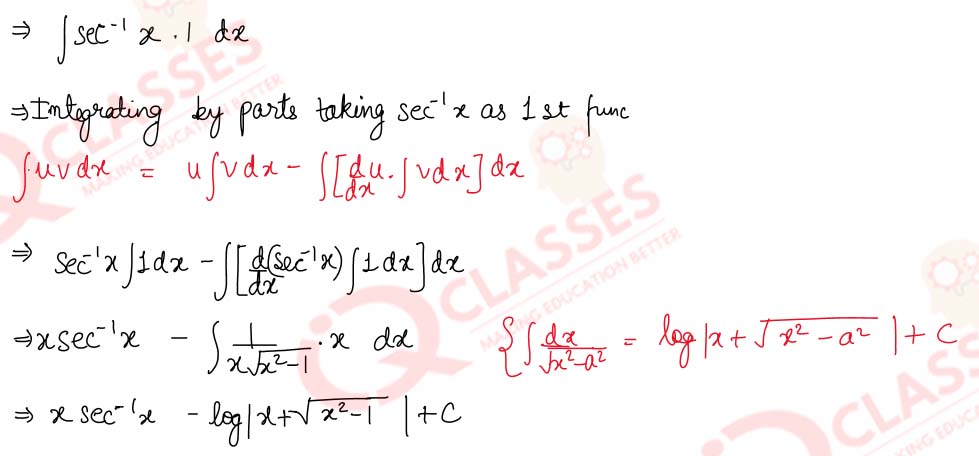 ⇒ ∫ sec⁻¹ x . 1 dx
⇒ Integrating by parts taking sec⁻¹x as 1 st func
∫ u v dx = u ∫ v dx - ∫ [ du/dx . ∫ v dx ] dx
⇒ sec⁻¹x ∫ 1 dx - ∫ [ d/dx (sec⁻¹x) ∫ 1 dx ] dx
⇒ x sec⁻¹x - ∫ 1/(x√(x²-1)) . x dx { ∫ dx/√(x²-a²) = log |x + √(x² - a²) | + C
⇒ x sec⁻¹x - log |x + √(x²-1) | + C
IQ CLASSES
MAKING EDUCATION BETTER
IQ CLASSES
MAKING EDUCATION BETTER
IQ CLASSES
MAKING EDUC